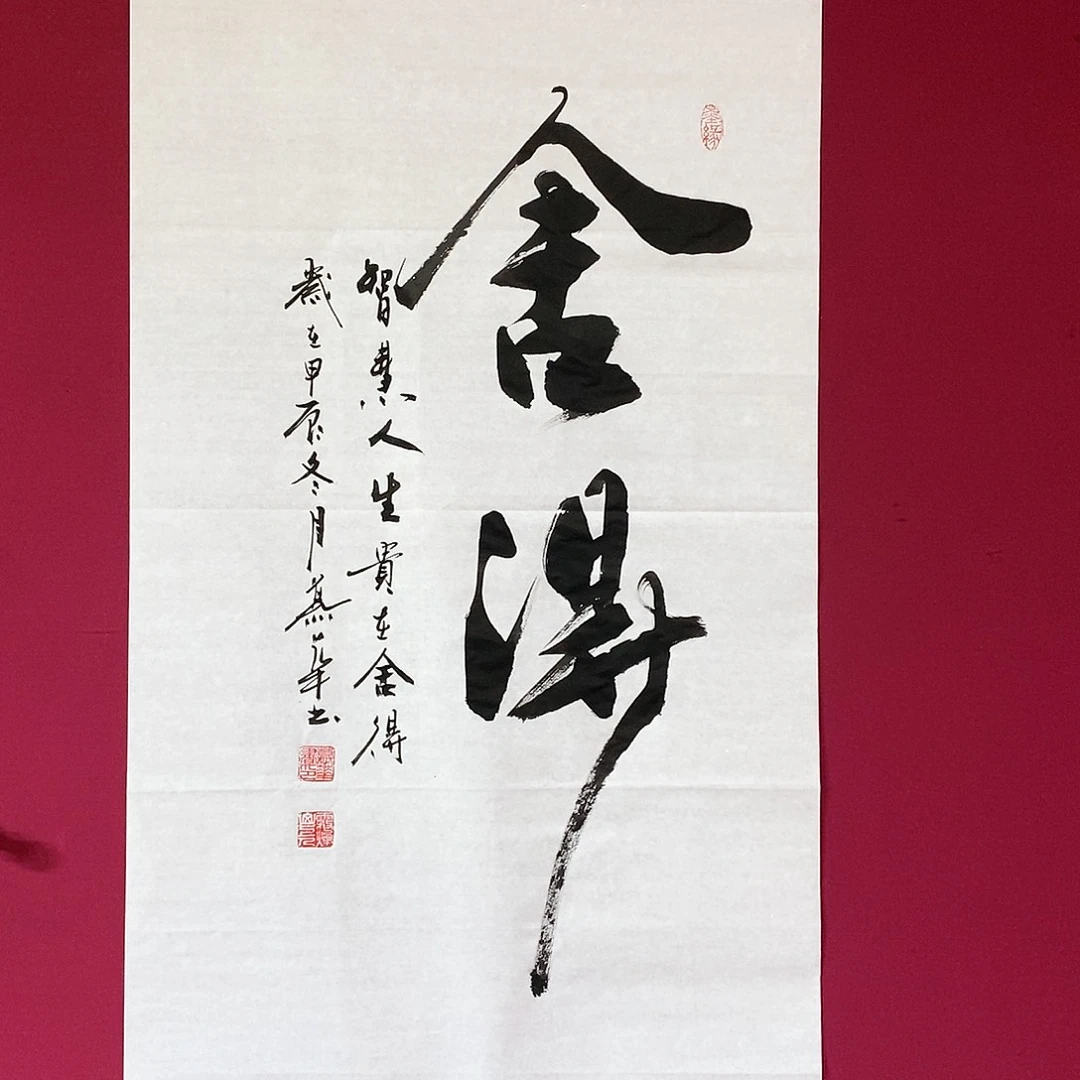 舍得
智慧人生貴在舍得
歲在甲辰冬月燕華书